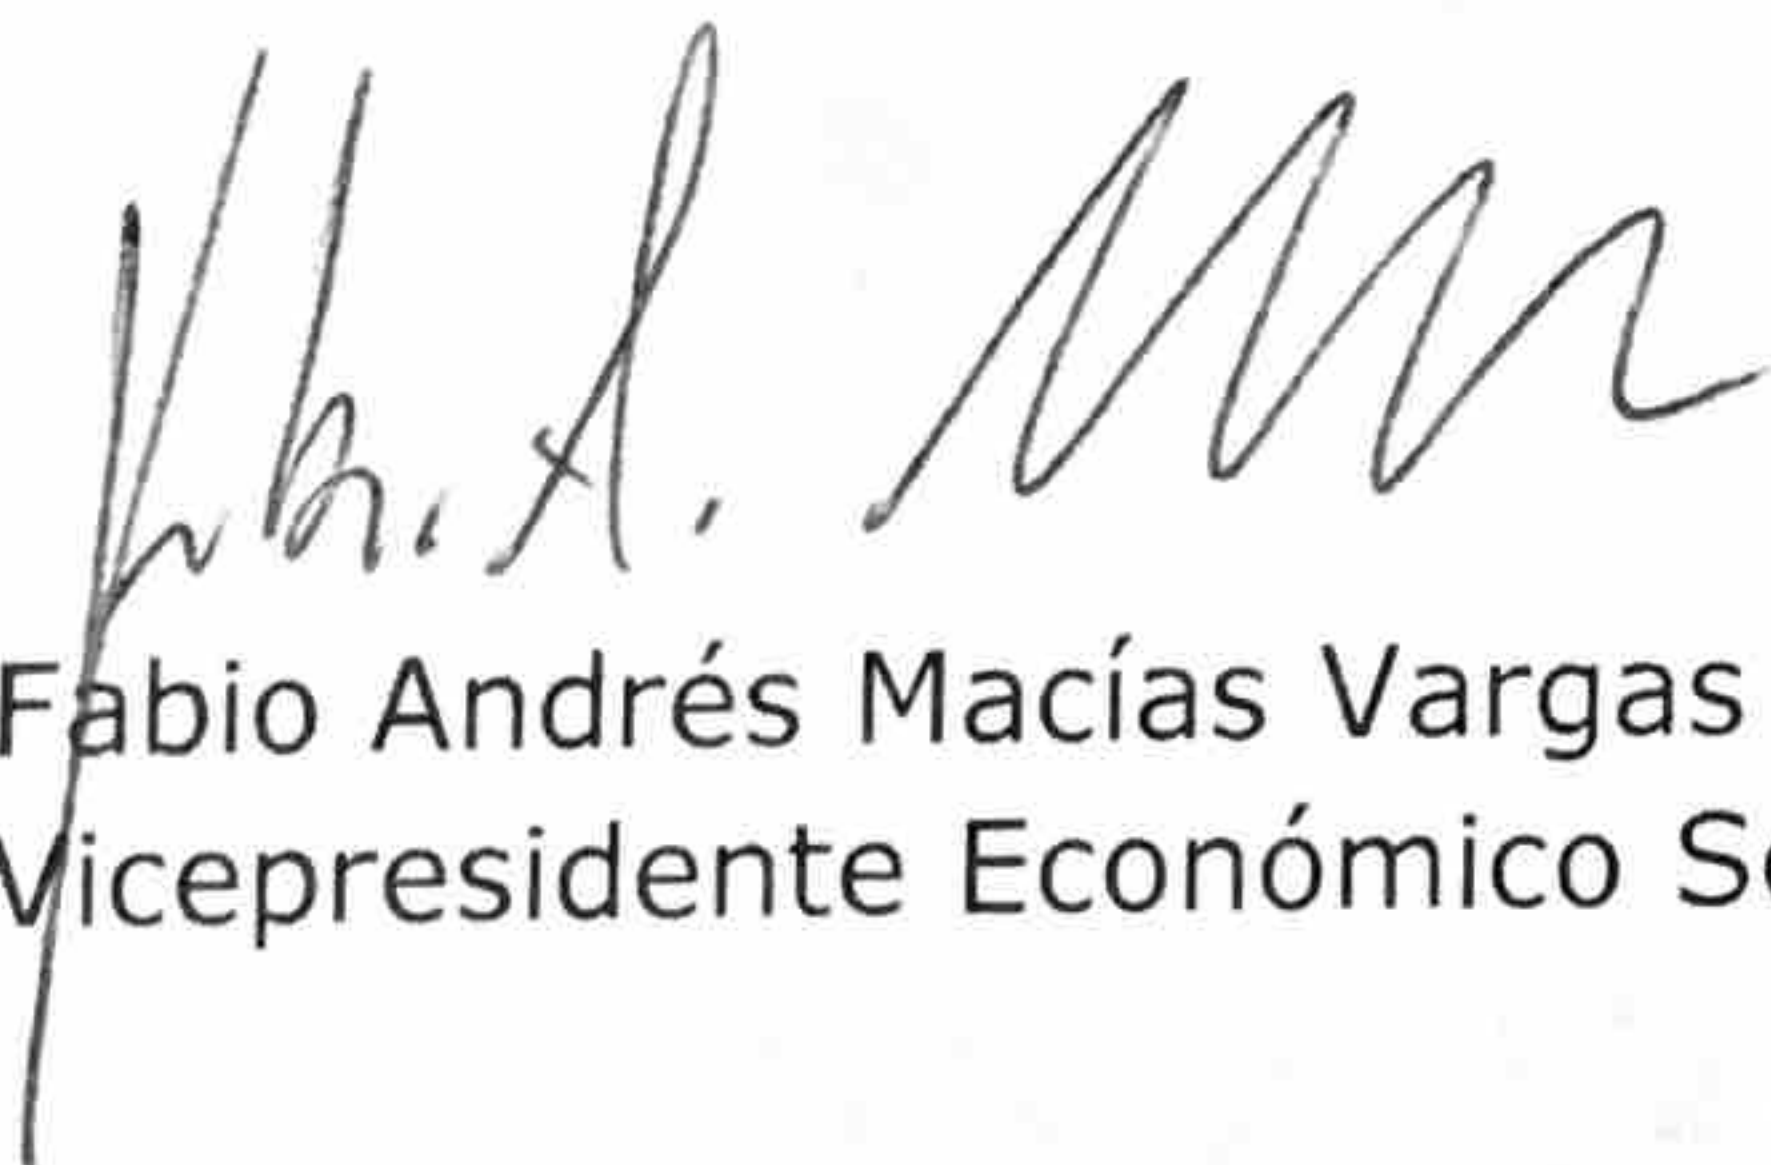 Fabio Andrés Macías Vargas
Vicepresidente Económico